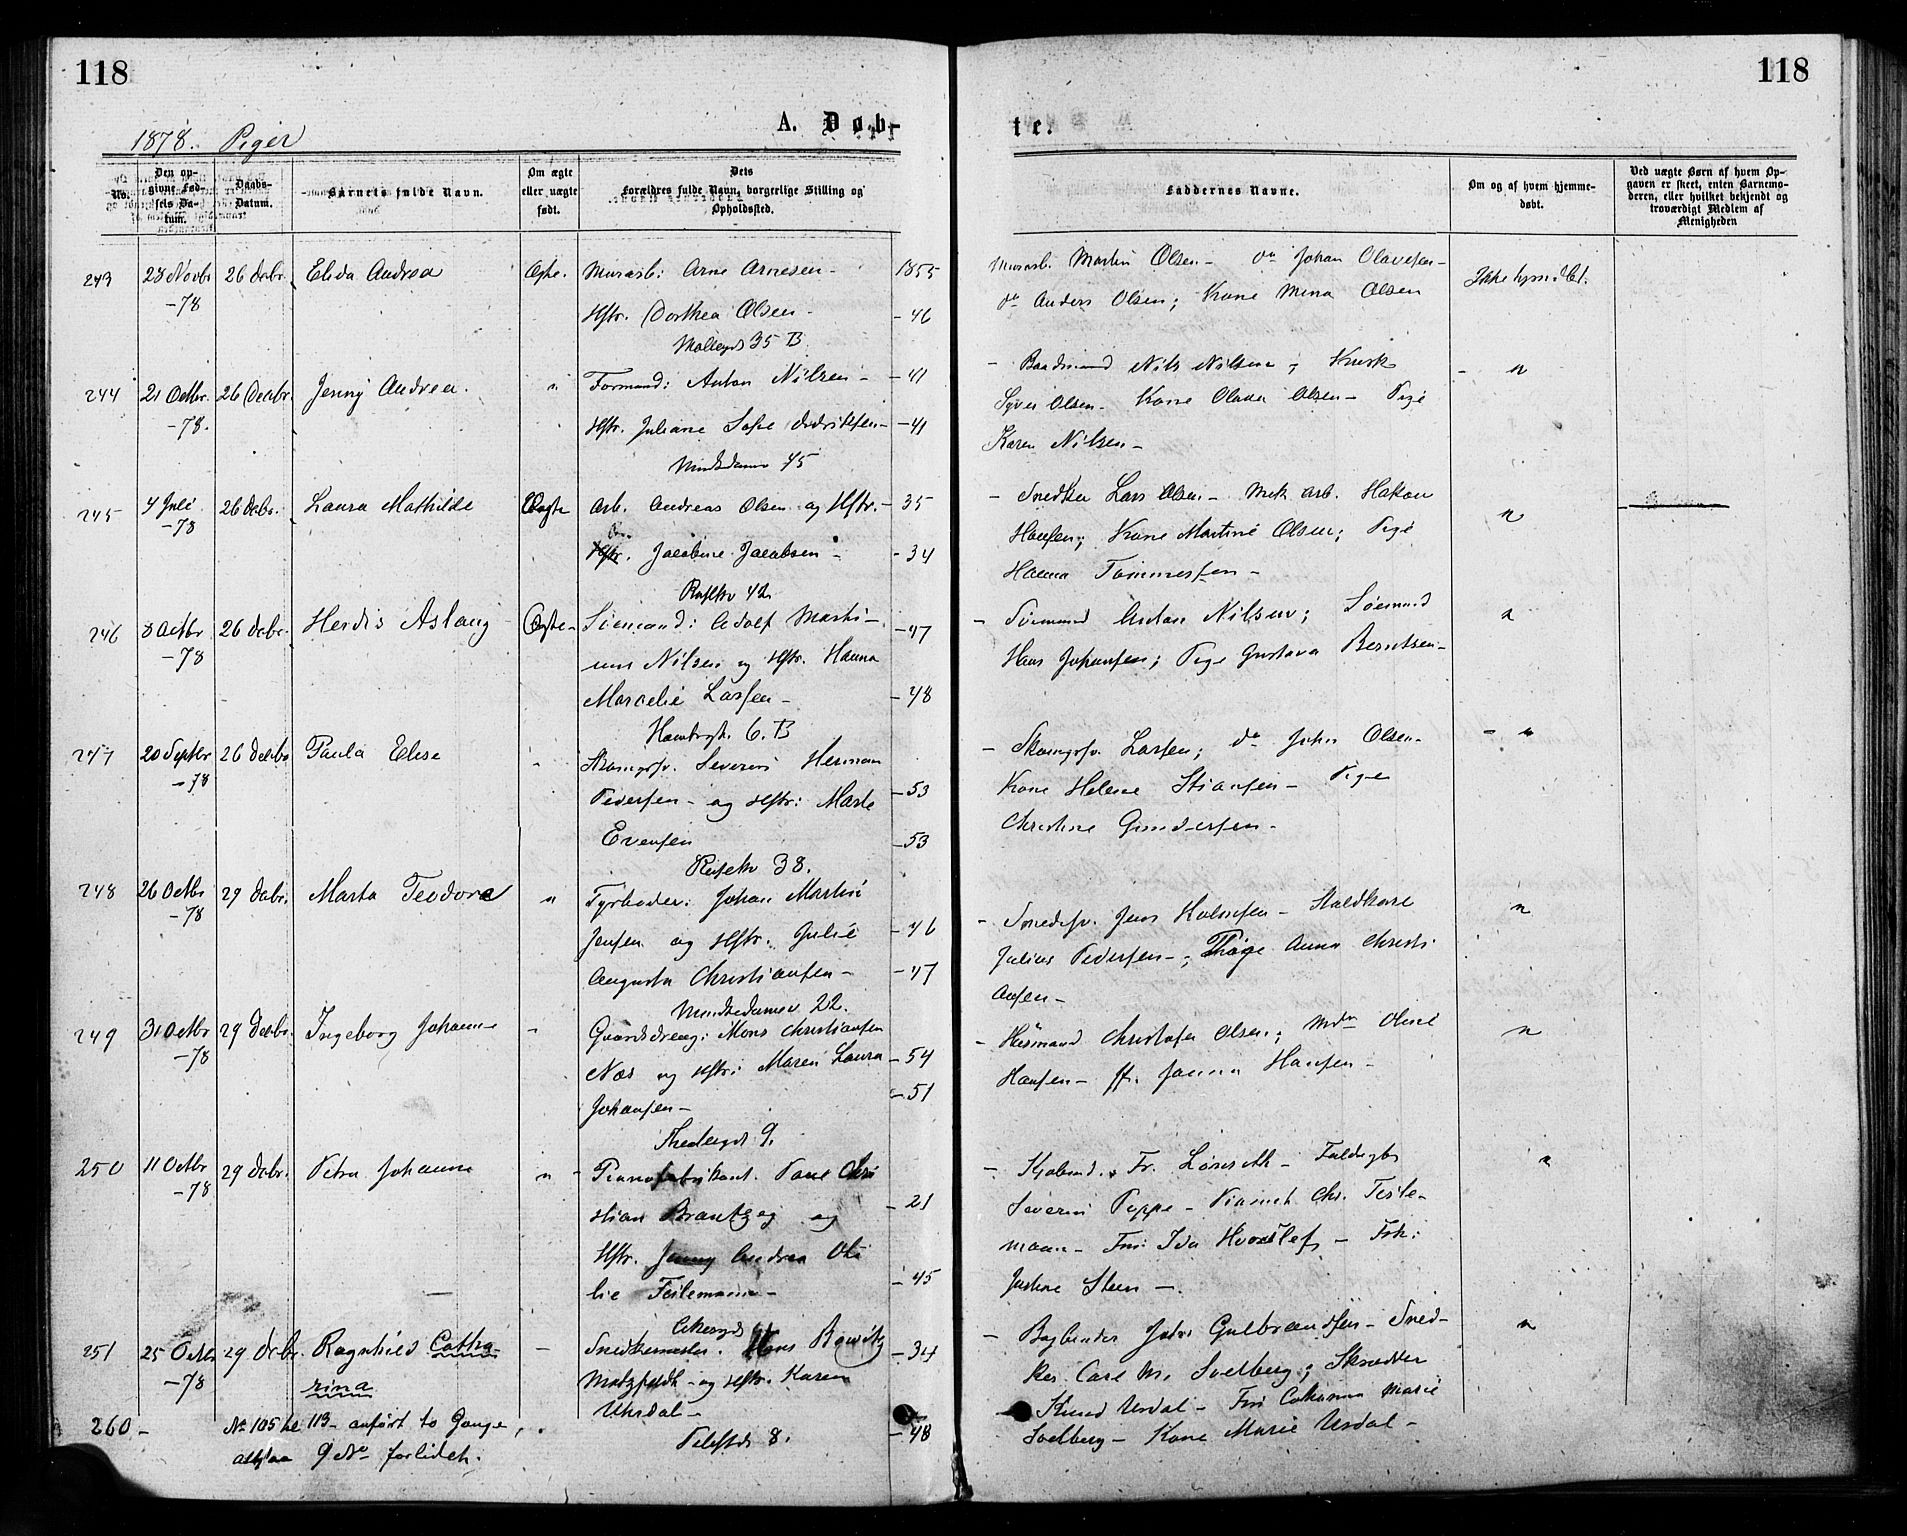 118
118
A. Døb-
te.
1878. Piger
No.
Den op-
givne Fød-
sels Da-
tum.
Daabs-
Datum.
Barnets fulde Navn.
Om ægte
eller uægte
født.
Dets
Forældres fulde Navn, borgerlige Stilling og
Opholdssted.
Faddernes Navne.
Om og af hvem hjemme-
døbt.
Ved uægte Børn af hvem Op-
gaven er skeet, enten Barnemo-
deren, eller hvilket bekjendt og
troværdigt Medlem af
Menigheden
243 28 Novbr 26 Decbr. Elida Andrea Ægte. Murarb: Arne Arnesen - 1855
-78
Hstr. Dorthea Olsen - - 46
35 B
Murarb. Martin Olsen - do Johan Olavesen -
do Anders Olsen; Kone Mina Olsen
Ikke hjemdbt.
244 21 Octbr. 26 Decbr. Jenny Andrea. " Formand: Anton Nilsen - - 41
-78.
Hstr. Juliane Sofie - 41
45
- Baadsmand Nils Nilsen -
Syver Olsen - Kone Olava Olsen - Pige
Karen Nilsen -
- "
245 4 Juli 26 Decbr. Laura Mathilde Ægte Arb. Andreas Olsen og Hstr. - 35
-78
Hstr. Jacobine Jacobsen - - 34
42
- Snedker Lars Olsen - Mek arb. Hakon
Hansen; Kone Martine Olsen; Pige
Hanna Tommessen -
"
246 8 Octbr 26 Decbr. Herdis Aslaug Ægte - Sømand: Adolf Marti- - 47
-78
nus Nilsen og Hstr. Hanna
Marcelie Larsen - - 48
6. B
- Sømand Anton Nilsen; Sømand
Hans Johansen; Pige Gustava Berntsen -
"
247 20 Septbr 26 Decbr Paula Elise " Skomgsv. Severin Herman
-78
Pedersen - og Hstr: Marte - 53
Evensen - 53
38.
- Skomgsv. Larsen; do John Olsen -
Kone Helene Stiansen - Pige
Christine Gundersen -
- "
248 26 Octbr 29 Decbr. Marta Teodora " Fyrbøder: Johan Martin
-78
Jensen og Hstr. Julie - 46
Augusta Christiansen - - 47
22.
- Snedsv. Jens Holmsen -
Julius Pedersen -; Pige Anna Christi
ansen -
"
249 31 Octbr 29 Decbr. Ingeborg Johanne " Gaardsdreng: Mons Christiansen
-78
Næs og Hstr: Maren Laura - 54
Johansen - - 51
9.
- Husmand Christofer Olsen; Mdm Oline
Hansen - Janna Hansen -
"
250 11 Octbr 29 Decbr. Petra Johanne " - Pianofabrikant. Paul Chri
-78
stian Brantzeg og - 21
Hstr. Jenny Andrea Oti
lie Teilemann - - 45
- Kjøbmd. Fr. -
Severin Peppe - Chr. Teile-
mann - Fru Ida Hvoslef - Frk:
Justine Steen -
"
251 25 Octbr 29 Decbr. Ragnhild Catha- - Snedkermester. Hans - 34
-78
rina
- og Hstr. Karen
Urdal - - 48
8.
- Bogbinder John Gulbrandsen - Sned-
ker Carl M. Svelberg; Skrædder
Knud Urdal - Fru Marie
Svelberg - Kone Marie Urdal -
"
260 - No 105 til 113 - anført to Gange,
altsaa 9 No forlidet.